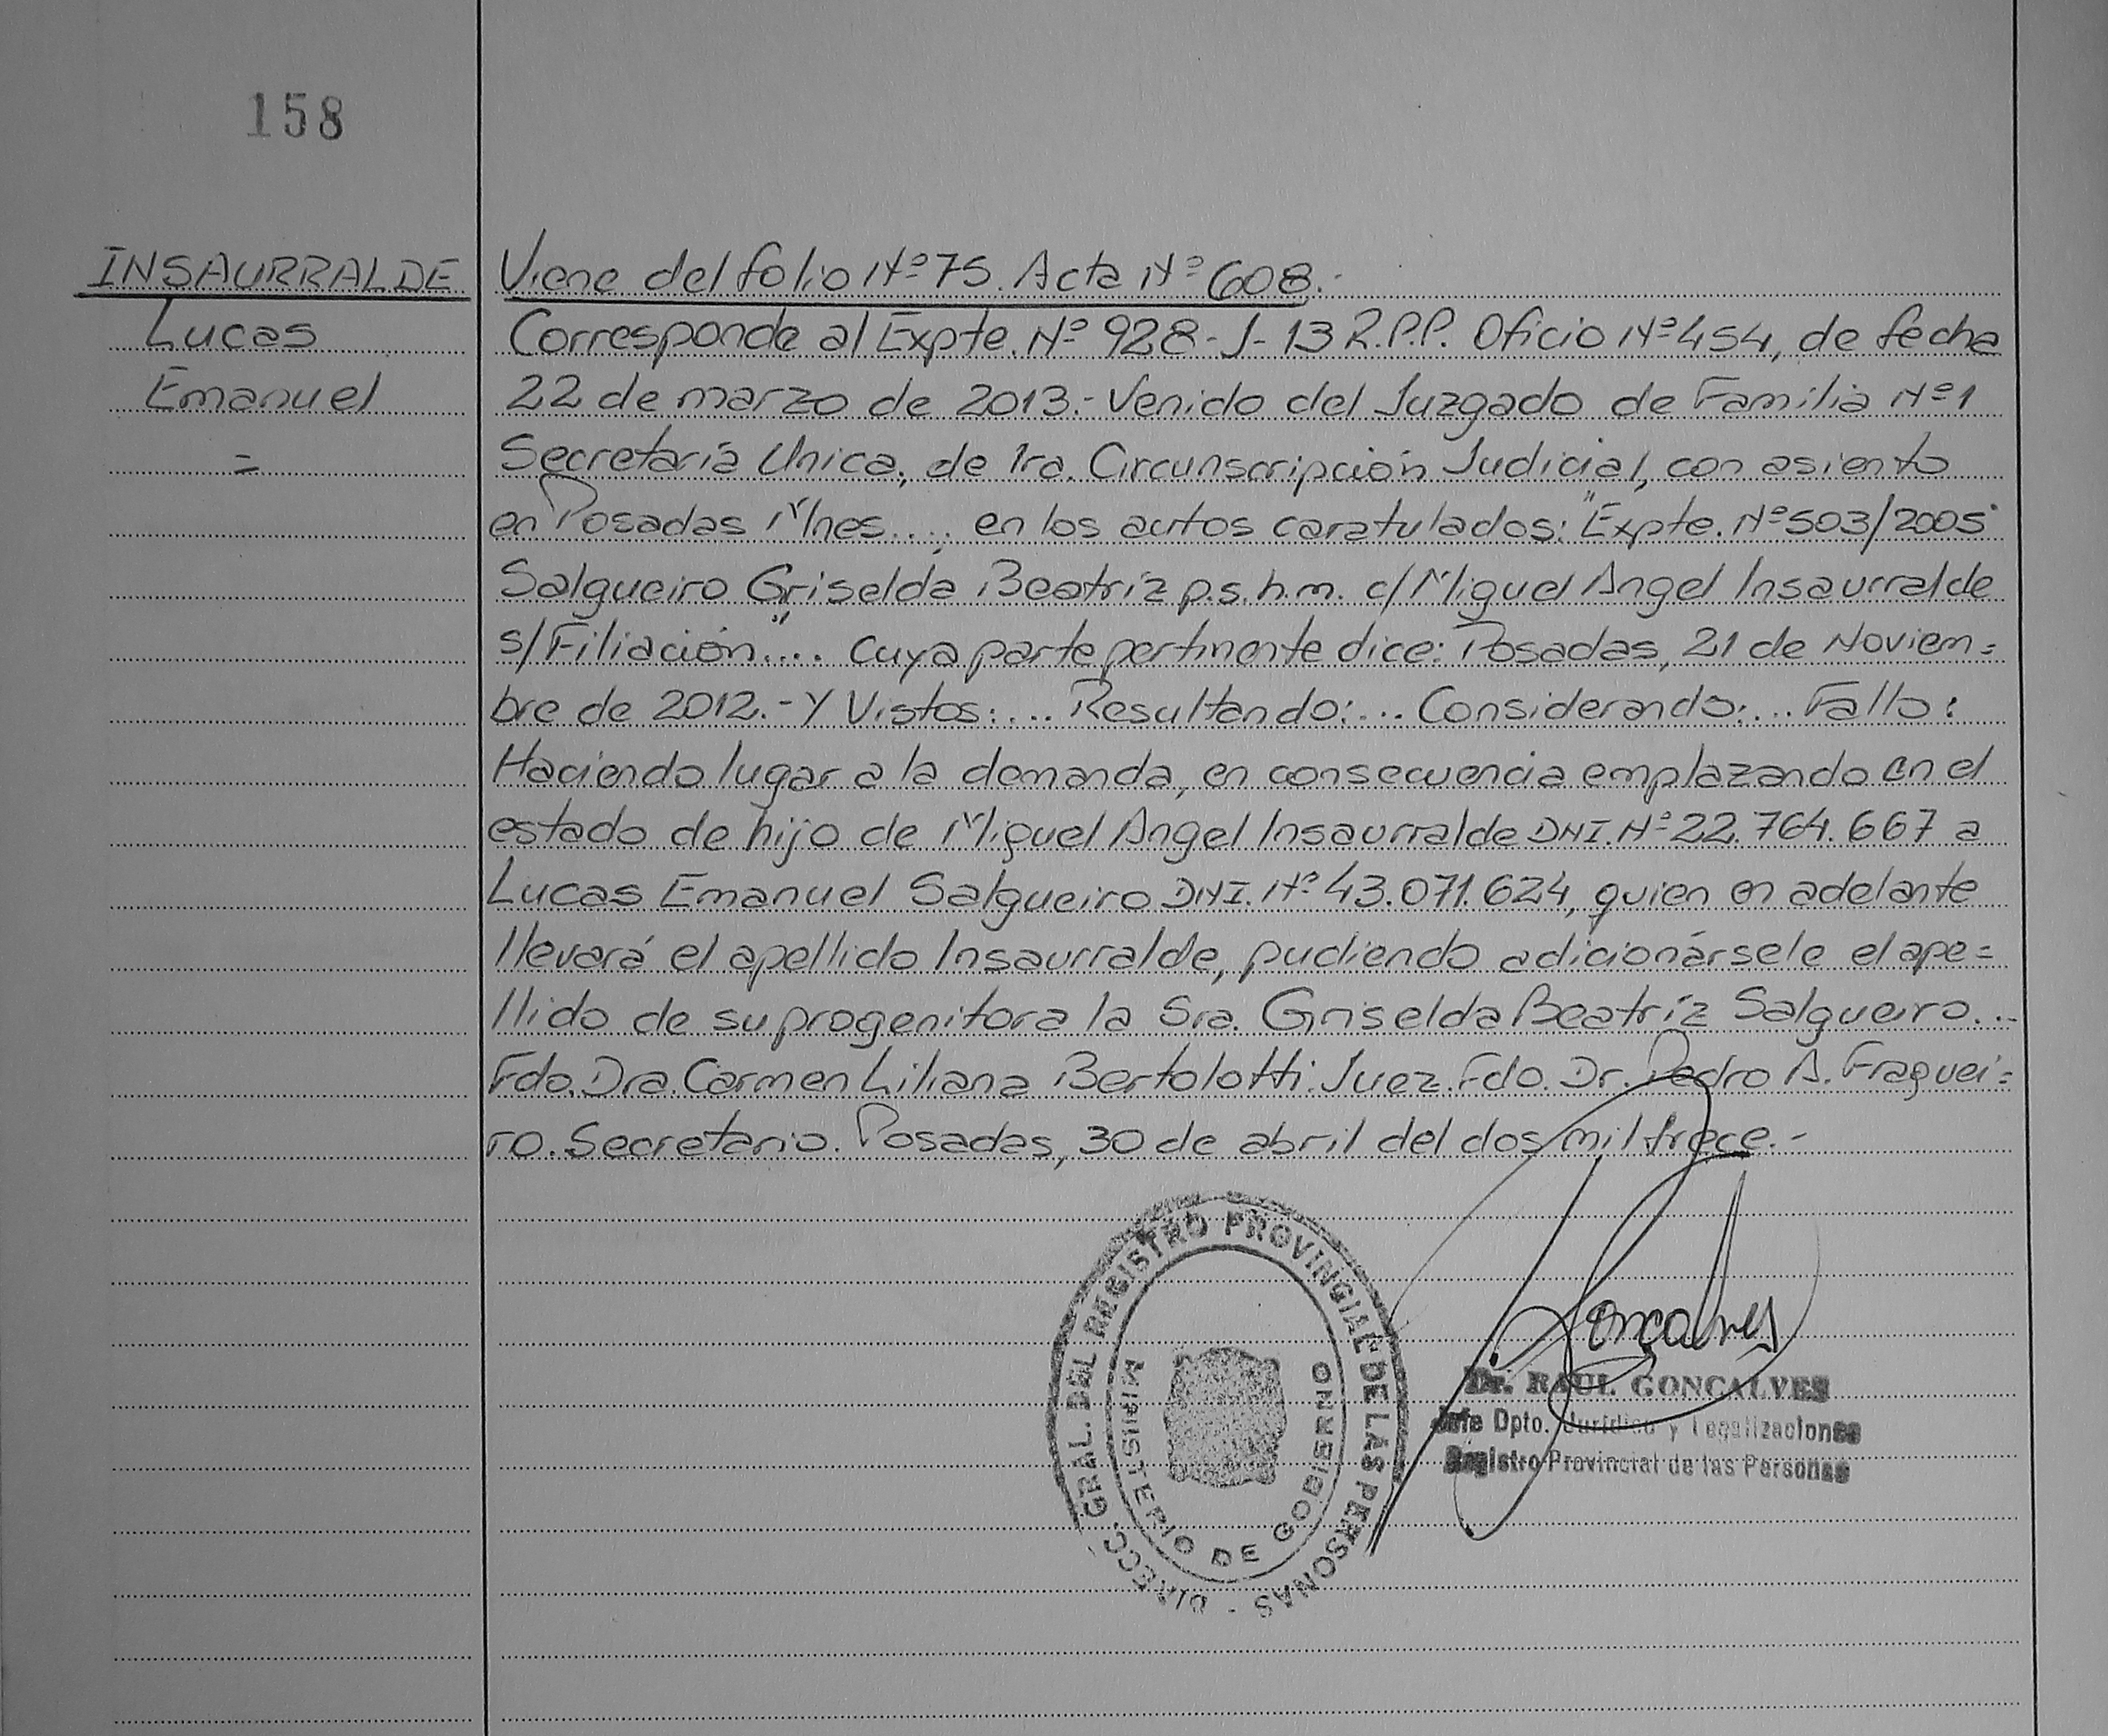 158
INSAURRALDE
Lucas
Emanuel
=
Viene del folio Nº 75. Acta Nº 608.-
Corresponde al Expte. Nº 928-J-13 R.P.P. Oficio Nº 454, de fecha
22 de marzo de 2013.- Venido del Juzgado de Familia Nº 1
Secretaría Unica, de 1ra. Circunscripción Judicial, con asiento
en Posadas Mnes...., en los autos caratulados: "Expte. Nº 503/2005
Salgueiro Griselda Beatríz p.s.h.m. c/ Miguel Angel Insaurralde
s/Filiación".... cuya parte pertinente dice: Posadas, 21 de Noviem=
bre de 2012.- Y Vistos:... Resultando:... Considerando:... Fallo:
Haciendo lugar a la demanda, en consecuencia emplazando en el
estado de hijo de Miguel Angel Insaurralde DNI. Nº 22.764.667 a
Lucas Emanuel Salgueiro DNI. Nº 43.071.624, quien en adelante
llevará el apellido Insaurralde, pudiendo adicionársele el ape=
llido de su progenitora la Sra. Griselda Beatríz Salgueiro...
Fdo. Dra. Carmen Liliana Bertolotti. Juez. Fdo. Dr. Pedro A. Fraguei=
ro. Secretario. Posadas, 30 de abril del dos mil trece.-
DIRECC. GRAL. DEL REGISTRO PROVINCIAL DE LAS PERSONAS -
MINISTERIO DE GOBIERNO
Goncalves
Dr. RAUL GONCALVES
Jefe Dpto. Jurídico y Legalizaciones
Registro Provincial de las Personas